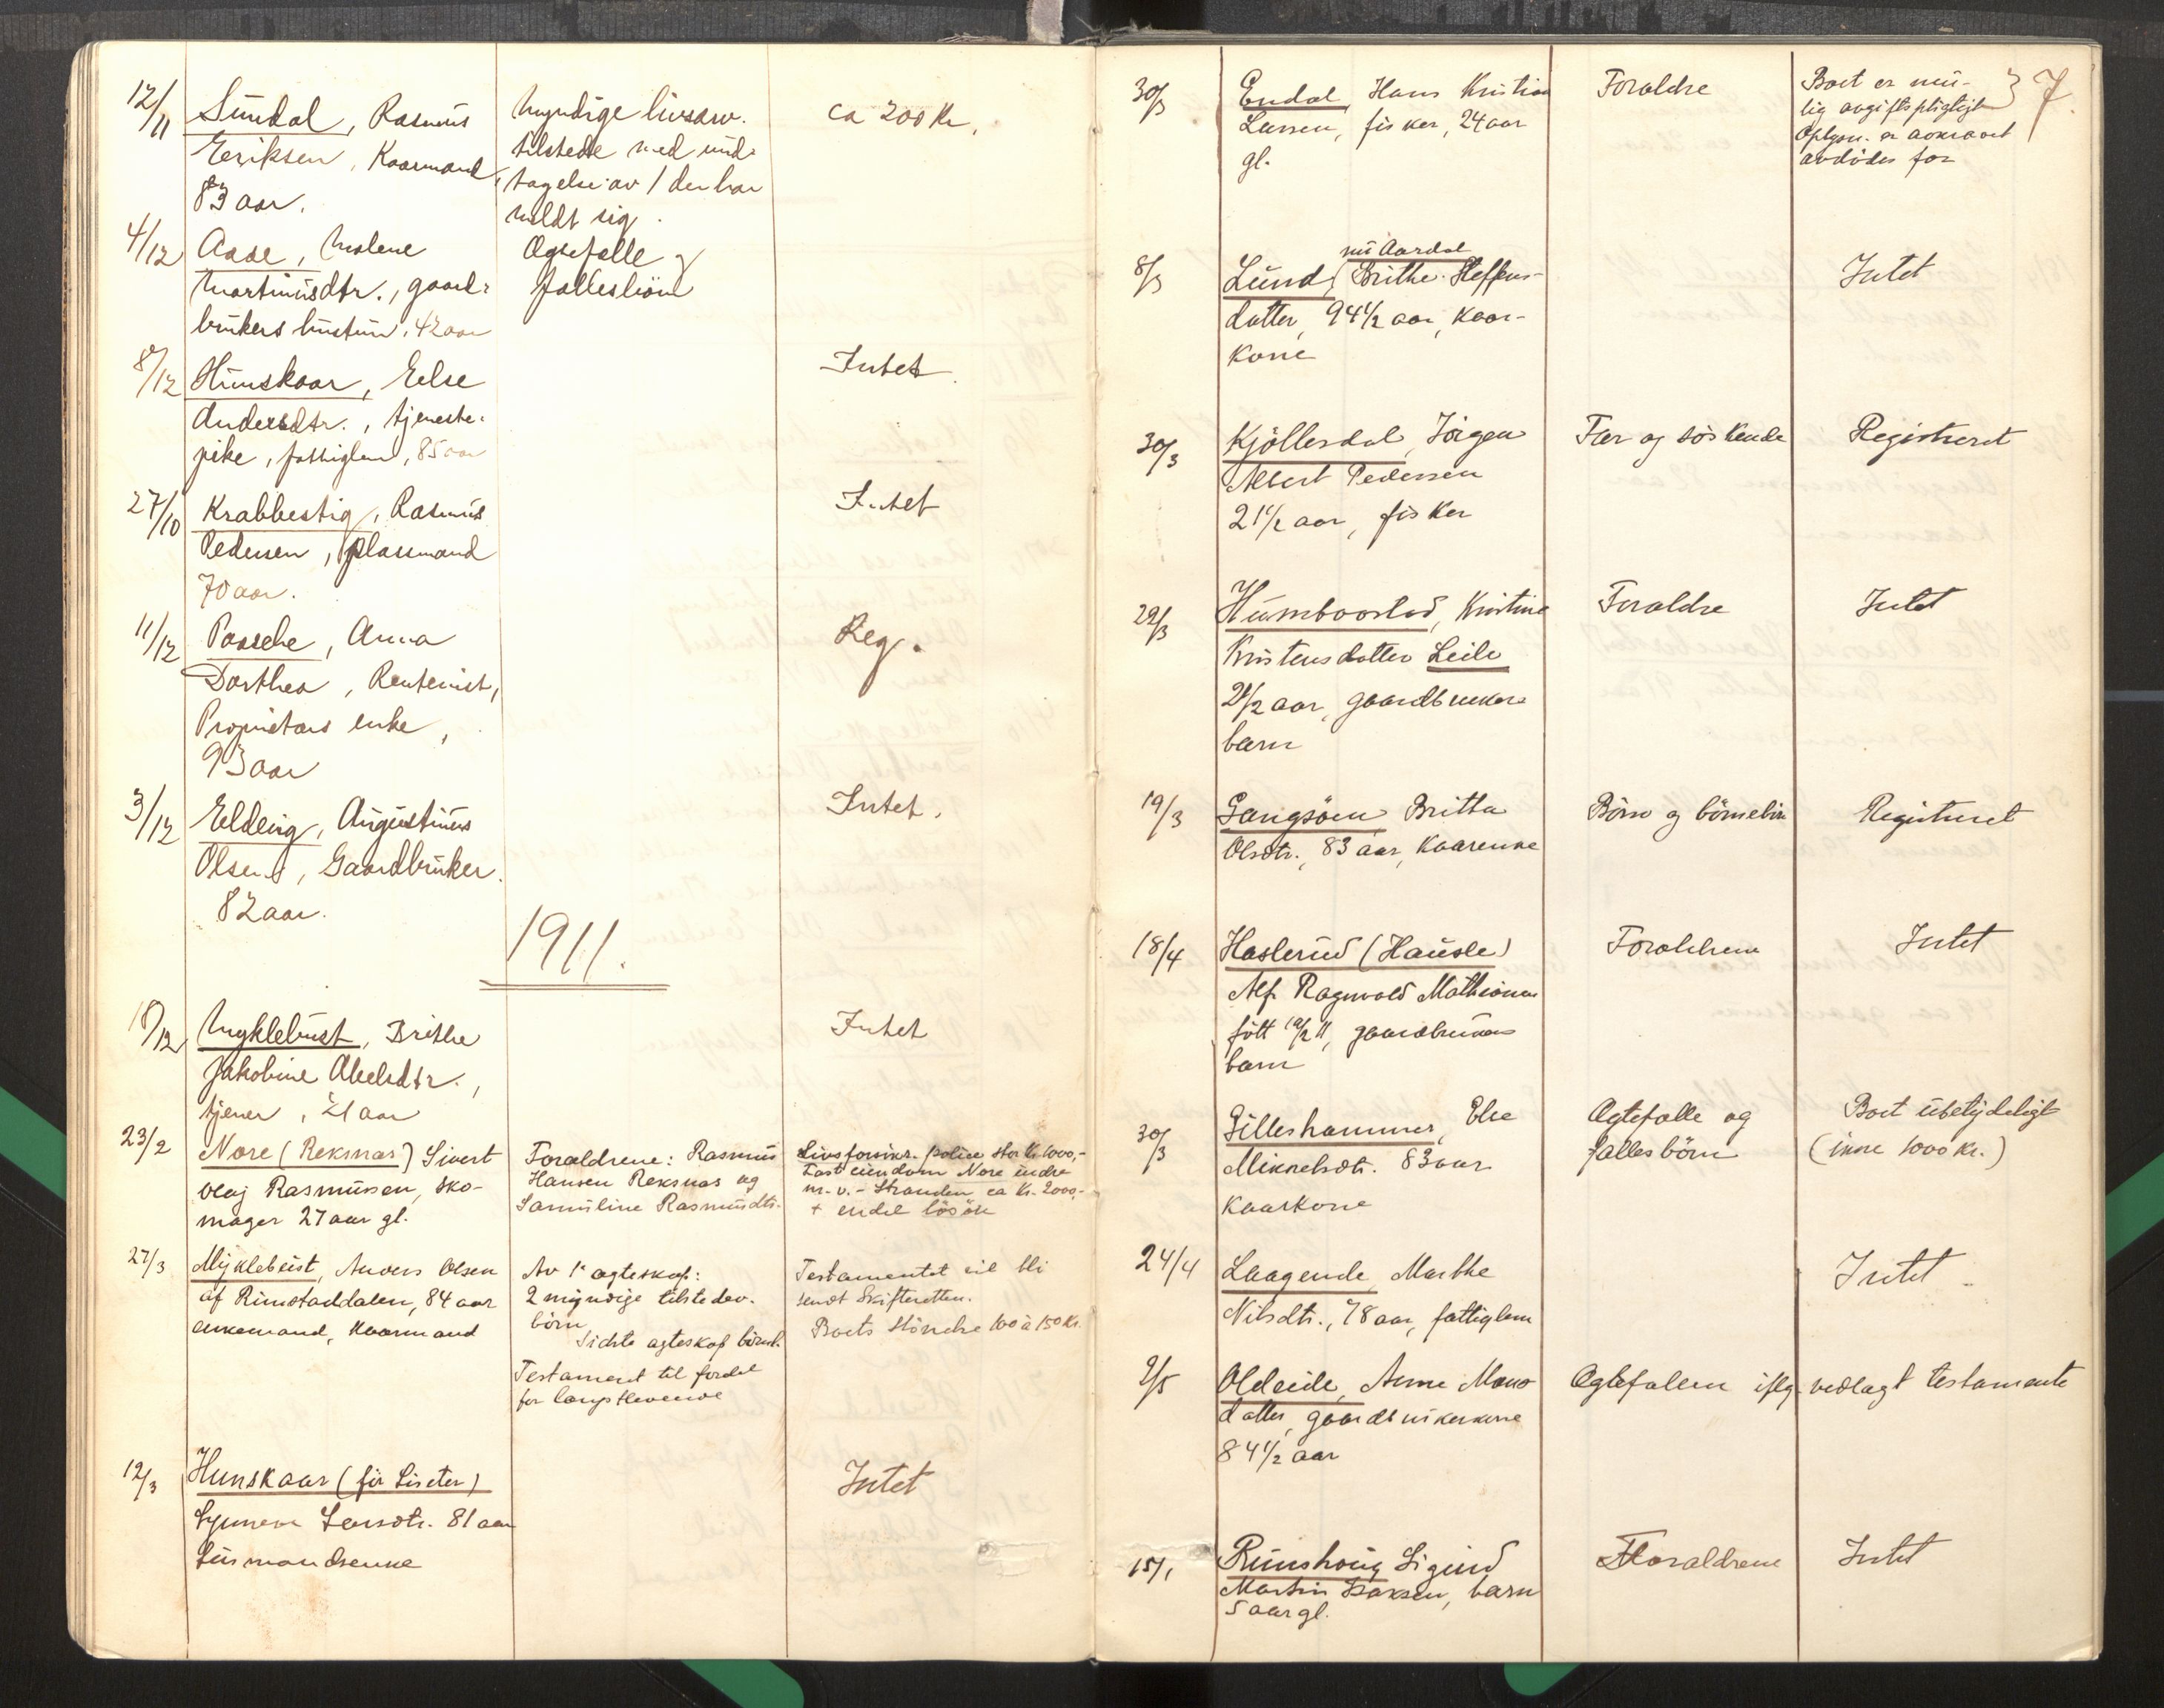 12/11 Sundal, Rasmus Myndige livsarv. ca 200 Kr.
Eriksen, Kaarmand, tilstede med und-
83 aar. tagelse av 1 der har
meldt sig.
4/12 Aase, Malene Ægtefælle og
Martinusdtr., gaard- fællesbörn
brukers hustru, 42 aar
8/12 Hunskaar, Else Intet
Andersdtr., tjeneste-
pike, fattiglem, 85 aar
27/10 Krabbestig, Rasmus Intet
Pedersen, plassmand
70 aar.
11/12 Paasche, Anna Reg.
Dorthea, Rentenist,
Proprietærs enke,
93 aar
3/12 Eldeiig, Augustinus Intet.
Olsen, Gaardbruker.
82 aar.
1911.
18/12 Myklebust, Brithe Intet
Jakobine Abelsdtr.,
tjener, 21 aar
23/2 Nore (Reksnæs) Sivert Forældrene: Rasmus Livsforsikr. police stor Kr 1000,-
Olaj Rasmussen, sko- Hansen Reksnæs og Fast eiendom Nore indre
mager 27 aar gl. Samuline Rasmusdtr. m. v. - Stranden ca Kr. 2000,-
+ endel lösöre
27/3 Myklebust, Anders Olsen Av 1ste ægteskap: Testamentet vil bli
af Rimstaddalen, 84 aar 2 myndige tilstedev. sendt Skifteretten.
enkemand, Kaarmand börn Boets Störrelse 100 à 150 Kr.
Sidste ægteskap börnel.
Testament til fordel
for længstlevende
12/3 Hunskaar (för Liseter) Intet
Synneve Larsdtr. 81 aar
Husmandsenke
7.
30/3 Endal, Hans Kristian Forældre Boet er mu-
Larsen, fisker, 24 aar lig avgiftspligtigt
gl. Oplysn. er avkrævet
avdödes far
nu Aardal
8/3 Lund, Brithe Steffens- Intet
datter, 94 1/2 aar, Kaar-
kone
30/3 Kjöllesdal, Jörgen Far og söskende Registreret
Albert Pedersen
21 1/2 aar, fisker
29/3 Humborstad, Kristine Forældre Intet
Kristensdatter Leile
2 1/2 aar, gaardbrukers
barn
19/3 Gangsöen Britta Börn og börnebörn Registreret
Olsdtr., 83 aar, Kaarenke
18/4 Haslerud (Hausle) Forældrene Intet
Alf Ragnvald Mathisen
født 19/2 11, gaardbrukers
barn
30/3 Gilleshammer, Else Ægtefælle og Boet ubetydeligt
Mikkelsdtr. 83 aar fællesbörn (inne 1000 Kr.)
Kaarkone
24/4 Laagende, Marthe Intet
Nilsdtr., 78 aar, fattiglem
9/5 Oldeide, Anne Mons- Ægtefællen iflg. vedlagt testamente
datter, gaardbrukerkone
84 1/2 aar
15/1 Runshoug Sigurd Forældrene Intet
Martin Isaksen, barn
5 aar gl.